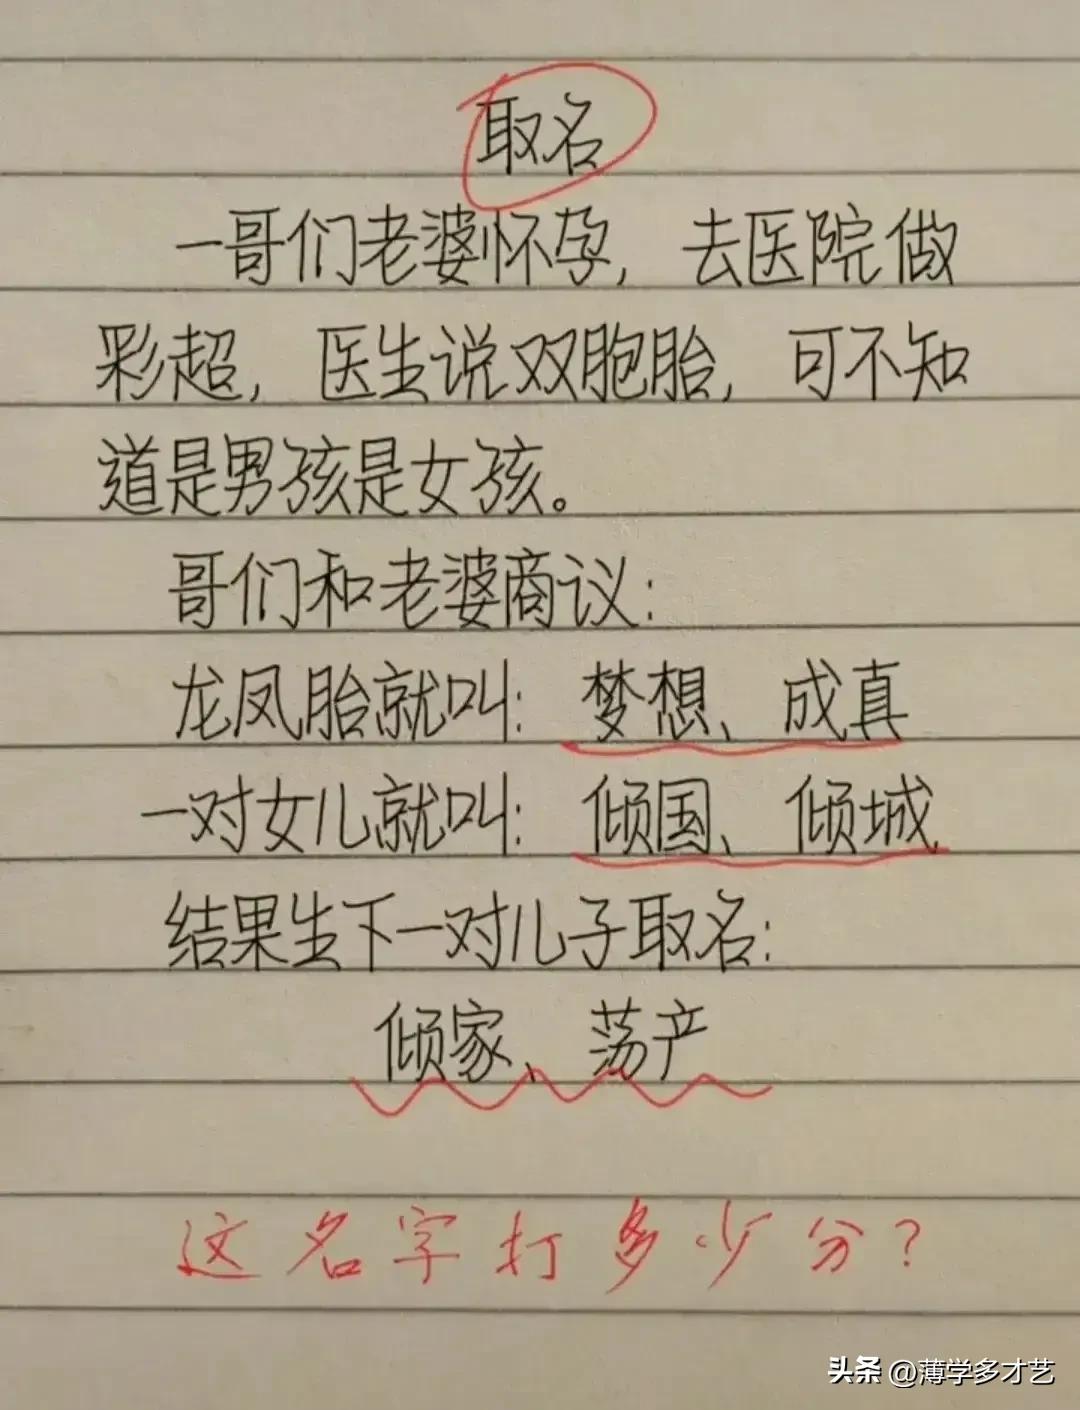 取名
一哥们老婆怀孕，去医院做
彩超，医生说双胞胎，可不知
道是男孩是女孩。
哥们和老婆商议：
龙凤胎就叫：梦想、成真
一对女儿就叫：倾国、倾城
结果生下一对儿子取名：
倾家、荡产
这名字打多少分？
头条 @薄学多才艺